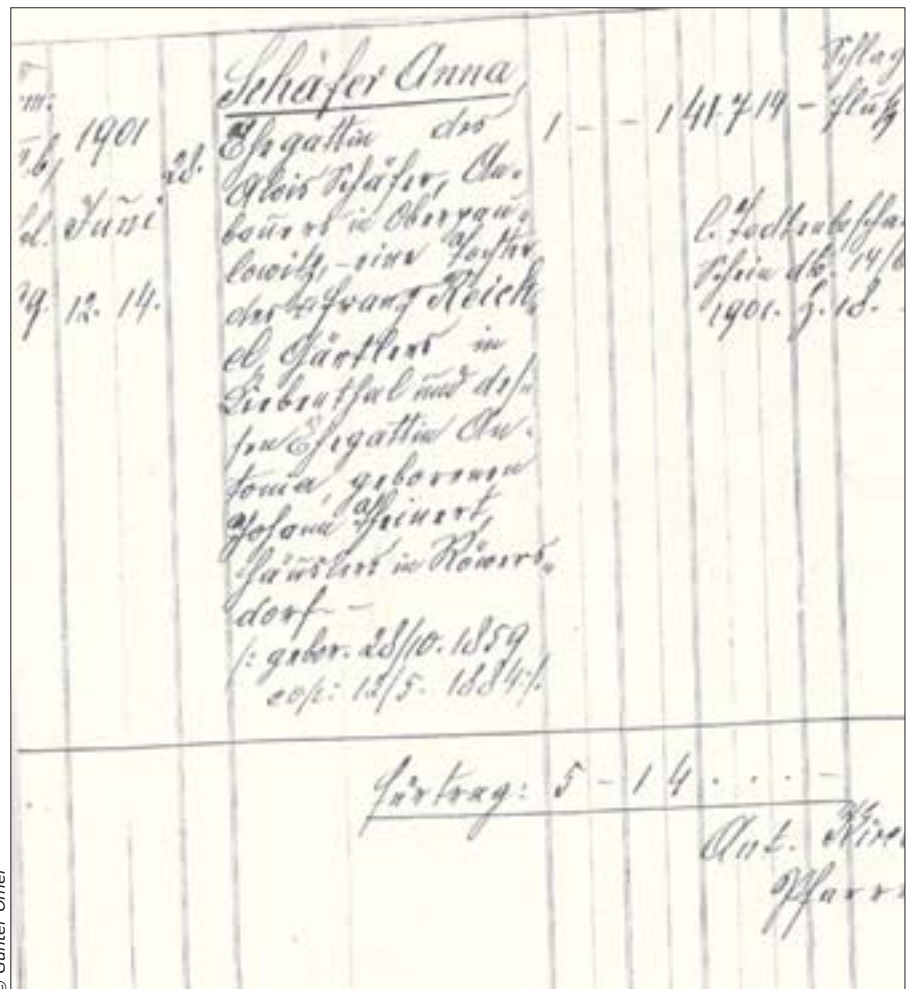 1901
Juni
12. 14.
28.
Schäfer Anna,
Ehegattin des
Alois Schäfer, An-
bauers in Oberpau-
lowitz, - eine Tochter
des Franz Reich-
el Gärtlers in
Liebenthal und des-
sen Ehegattin An-
tonia, geborenen
Johann Theinert,
Häuslers in Röwers-
dorf -
/: gebor. 28/10. 1859
cop: 12/5. 1884 :/
1 - - 1 41 7 19 -
Schlag
fluß
l. Todtenbescha
Schein dto. 14/6
1901. Z. 18. -
Fürtrag: 5 - 1 4 . . . -
Ant.
Pfarr
© Günter Ofner